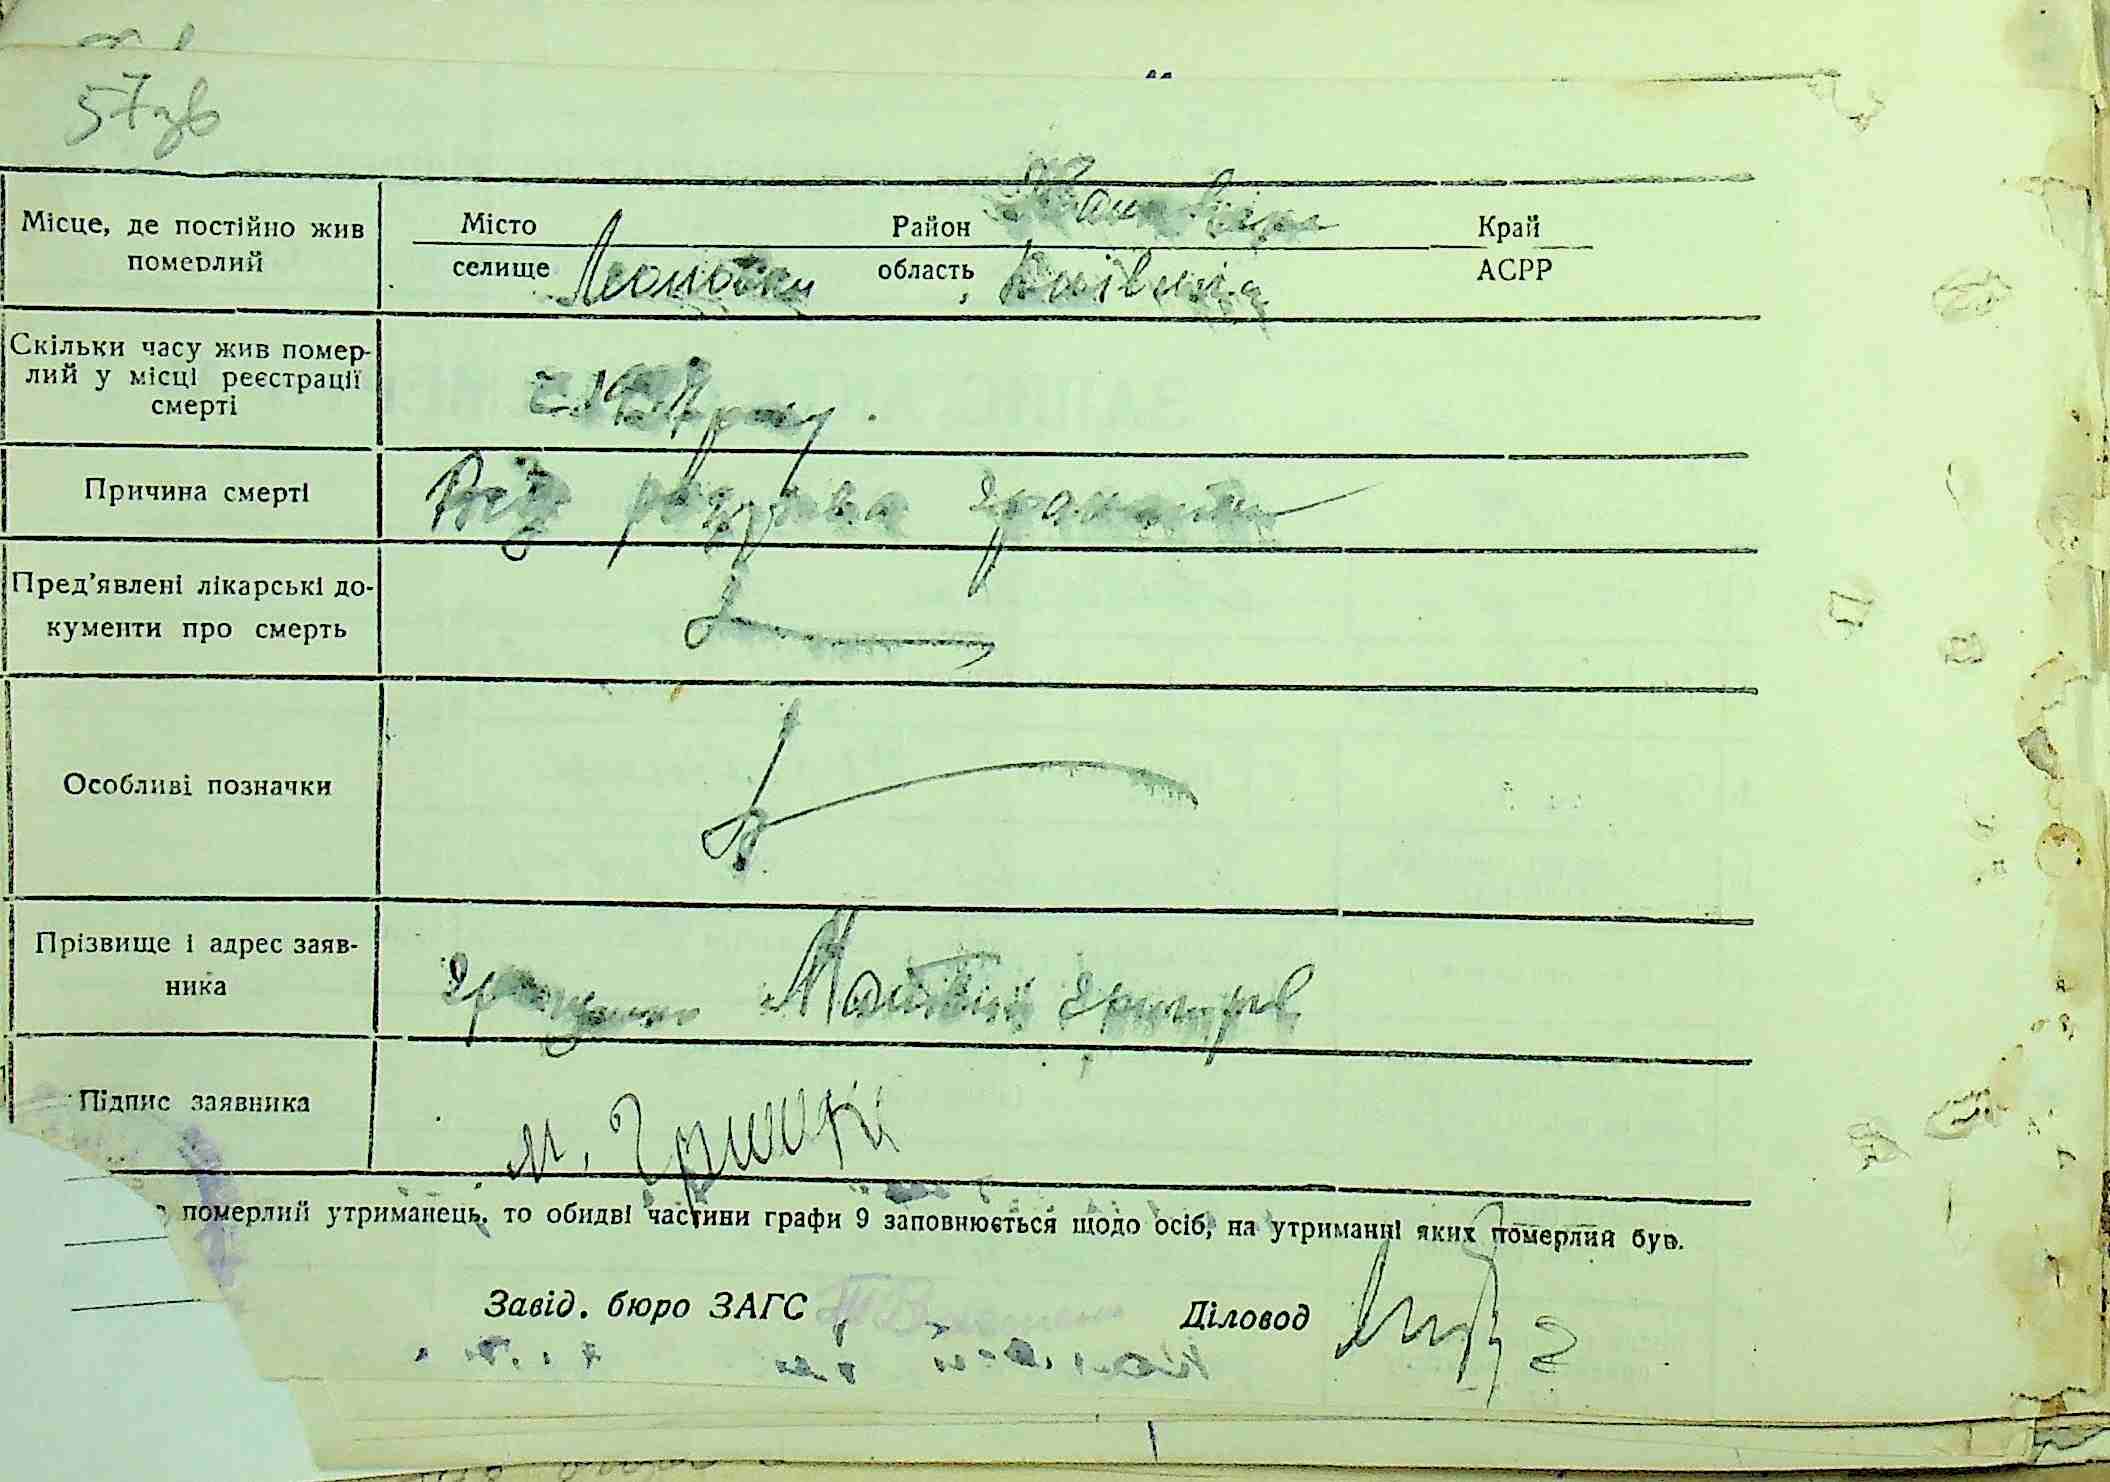 57зв
Місце, де постійно жив
померлий
Місто Район Край
селище Леонівка область Київська АСРР
Скільки часу жив помер-
лий у місці реєстрації
смерті
з 1937 року.
Причина смерті
Від розрива гранати
Пред'явлені лікарські до-
кументи про смерть
Особливі позначки
Прізвище і адрес заяв-
ника
Матвій Григоров
Підпис заявника
М. Гришко
померлий утриманець, то обидві частини графи 9 заповнюється щодо осіб, на утриманні яких померлий був.
Завід. бюро ЗАГС Діловод